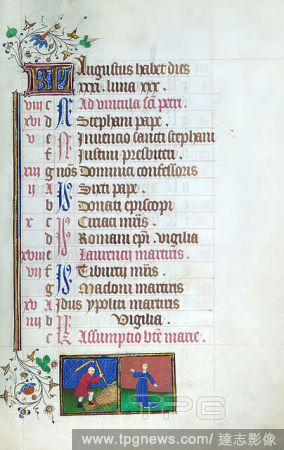 KL Augustus habet dies
xxxi. luna xxx.
viii c Ad vincula sci petri.
xvi d Stephani pape.
v e Inuincio sancti stephani
f Iustini presbiteri.
xiii g nōs Dominici confessoris
ii A Sixti pape.
b Donati episcopi
x c Ciriaci mris.
d Romani epi. vigilia
xviii e Laurencii martiris.
vii f Tiburcii mris.
g martiris
xv A Idus ypoliti martiris
iiii b Vigilia.
c Assumptio bte marie.
TPG
www.tpgnews.com / 達志影像